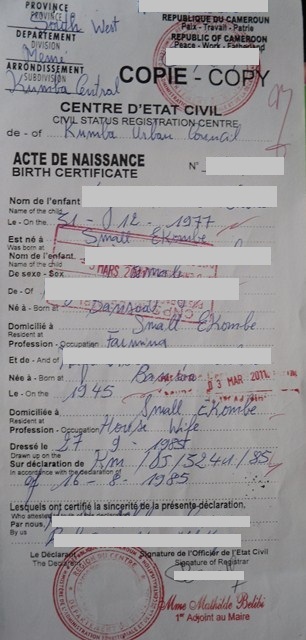 PROVINCE
PROVINCE
South West
DEPARTEMENT
DIVISION
Meme
ARRONDISSEMENT
SUBDIVISION
Kumba Central
REPUBLIQUE DU CAMEROUN
Paix - Travail - Patrie
REPUBLIC OF CAMEROON
Peace - Work - Fatherland
COPIE - COPY
CENTRE D'ETAT CIVIL
CIVIL STATUS REGISTRATION CENTRE
de - of Kumba Urban Council
ACTE DE NAISSANCE
BIRTH CERTIFICATE
N°
Nom de l'enfant
Name of the child
Le - On the 31 - 12 - 1977
Est né à Small Ekombe
Was born at
Nom de l'enfant
Name of the child
De sexe - Sex
De - Of
Né à - Born at
Domicilié à Small Ekombe
Resident at
Profession - Occupation Farming
Et de - And of
Née à - Born at
Le - On the 1945
03 MAR 2011
Domiciliée à Small Ekombe
Resident at
Profession - Occupation House Wife
Dressé le 27 - 9 - 1985
Drawn up on the
Sur déclaration de Km /05/5241/85
In accordance with the declaration of
of 16 - 8 - 1985
Lesquels ont certifié la sincerité de la présente déclaration.
Who attested
Par nous,
By us
Le Déclarant
The Declarant
Signature de l'Officier de l'Etat Civil
Signature of Registrar
Mme Mathilde Belibi
1er Adjoint au Maire